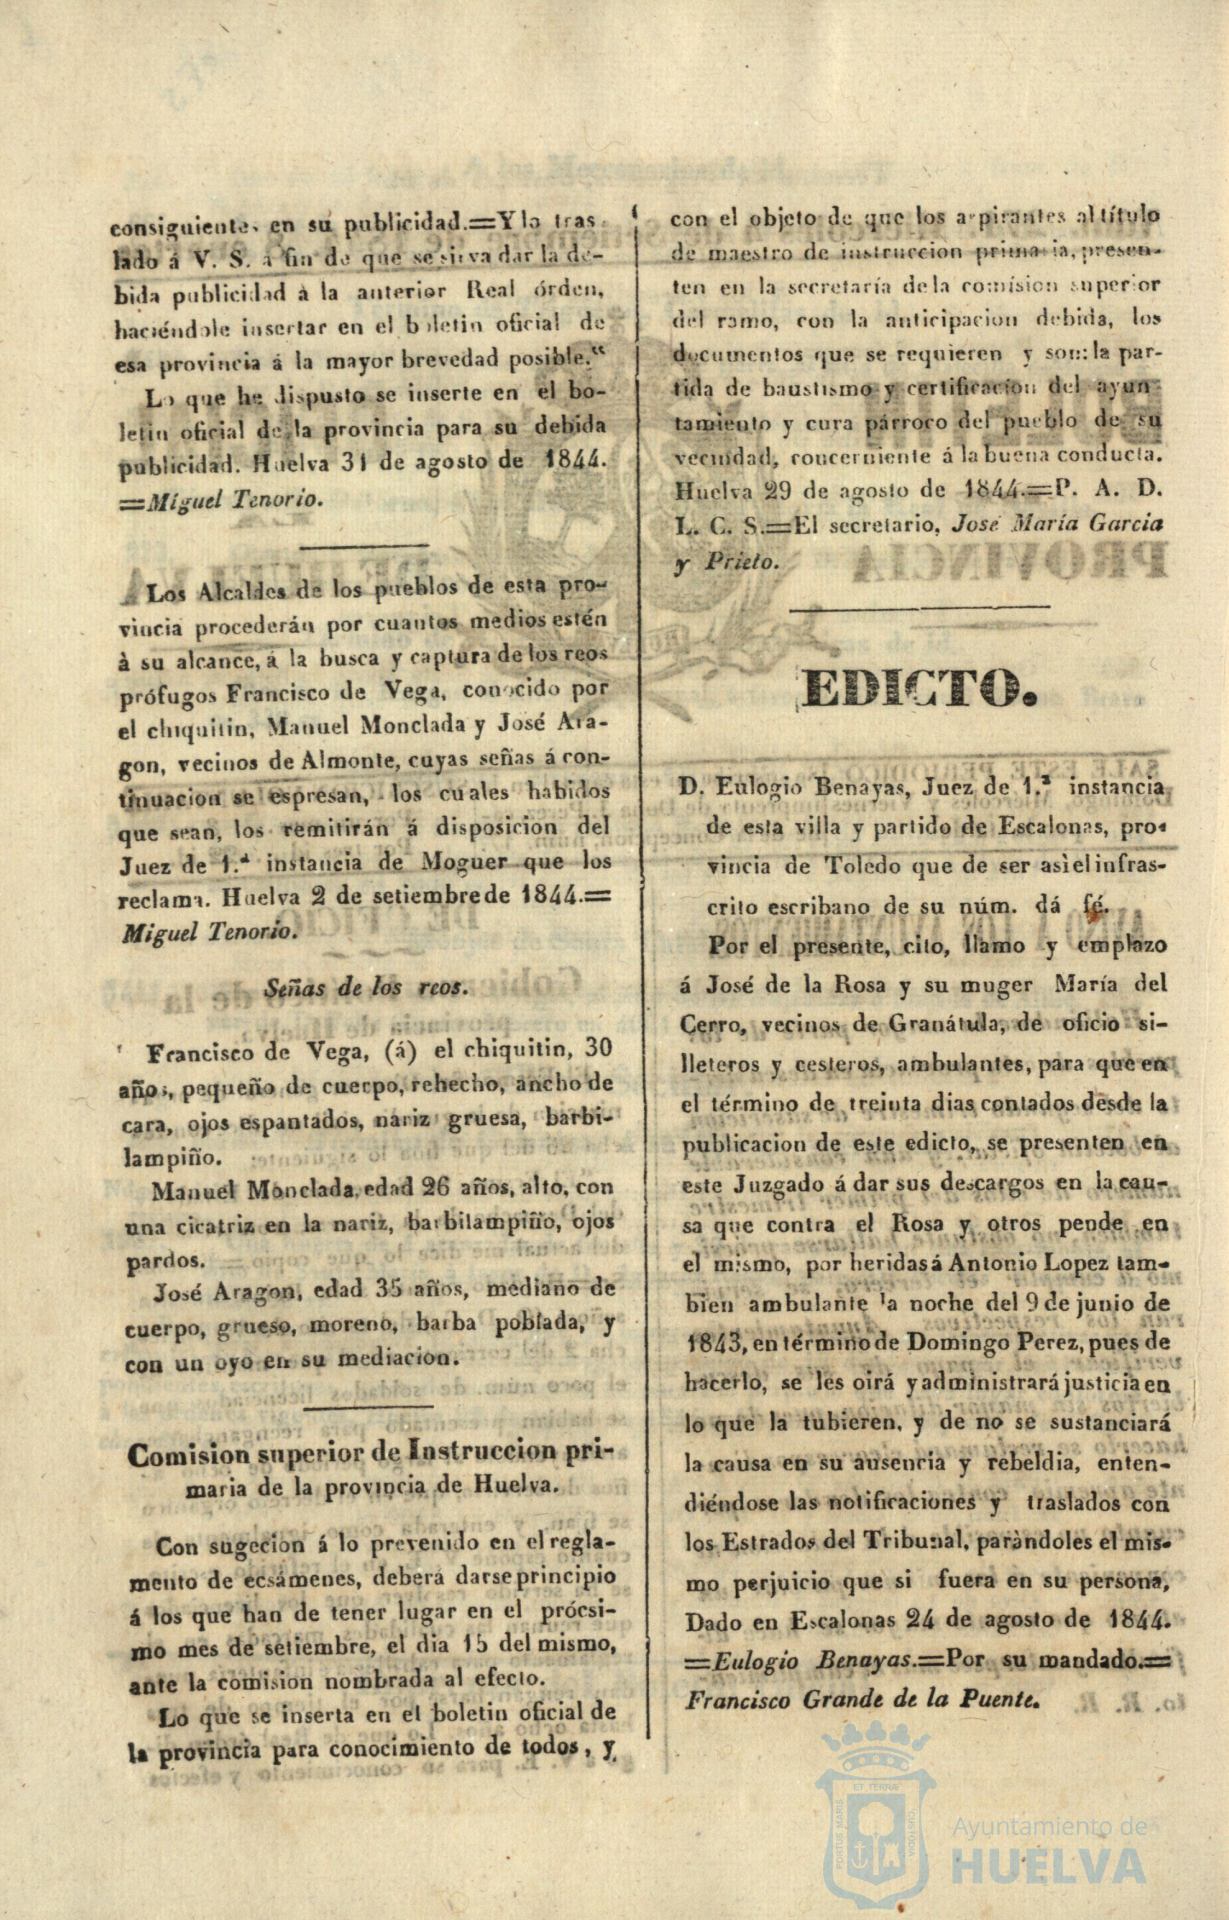 consiguiente, en su publicidad.=Y lo tras
lado á V. S. á fin de que se sirva dar la de-
bida publicidad à la anterior Real órden,
haciéndole insertar en el boletin oficial de
esa provincia á la mayor brevedad posible."
Lo que he dispusto se inserte en el bo-
letin oficial de la provincia para su debida
publicidad. Huelva 31 de agosto de 1844.
=Miguel Tenorio.
Los Alcaldes de los pueblos de esta pro-
vincia procederán por cuantos medios estén
à su alcance, á la busca y captura de los reos
prófugos Francisco de Vega, conocido por
el chiquitin, Manuel Monclada y José Ara-
gon, vecinos de Almonte, cuyas señas á con-
tinuacion se espresan, los cuales habidos
que sean, los remitirán á disposicion del
Juez de 1.ª instancia de Moguer que los
reclama. Huelva 2 de setiembre de 1844.=
Miguel Tenorio.
Señas de los reos.
Francisco de Vega, (á) el chiquitin, 30
años, pequeño de cuerpo, rehecho, ancho de
cara, ojos espantados, nariz gruesa, barbi-
lampiño.
Manuel Monclada, edad 26 años, alto, con
una cicatriz en la nariz, barbilampiño, ojos
pardos.
José Aragon, edad 35 años, mediano de
cuerpo, grueso, moreno, barba poblada, y
con un oyo en su mediacion.
Comision superior de Instruccion pri-
maria de la provincia de Huelva.
Con sugecion á lo prevenido en el regla-
mento de ecsámenes, deberá darse principio
á los que han de tener lugar en el prócsi-
mo mes de setiembre, el dia 15 del mismo,
ante la comision nombrada al efecto.
Lo que se inserta en el boletin oficial de
la provincia para conocimiento de todos, y
con el objeto de que los aspirantes al título
de maestro de instruccion primaria, presen-
ten en la secretaría de la comísion superior
del ramo, con la anticipacion debida, los
documentos que se requieren y son: la par-
tida de baustismo y certificacion del ayun-
tamiento y cura párroco del pueblo de su
vecindad, concerniente á la buena conducta.
Huelva 29 de agosto de 1844.=P. A. D.
L. C. S.=El secretario, José María Garcia
y Prieto.
EDICTO.
D. Eulogio Benayas, Juez de 1.ª instancia
de esta villa y partido de Escalonas, pro-
vincia de Toledo que de ser asi el infras-
crito escribano de su núm. dá fé.
Por el presente, cito, llamo y emplazo
á José de la Rosa y su muger María del
Cerro, vecinos de Granátula, de oficio si-
lleteros y cesteros, ambulantes, para que en
el término de treinta dias contados desde la
publicacion de este edicto, se presenten en
este Juzgado á dar sus descargos en la cau-
sa que contra el Rosa y otros pende en
el mismo, por heridas á Antonio Lopez tam-
bien ambulante la noche del 9 de junio de
1843, en término de Domingo Perez, pues de
hacerlo, se les oirá y administrará justicia en
lo que la tubieren, y de no se sustanciará
la causa en su ausencia y rebeldia, enten-
diéndose las notificaciones y traslados con
los Estrados del Tribunal, paràndoles el mis-
mo perjuicio que si fuera en su persona,
Dado en Escalonas 24 de agosto de 1844.
=Eulogio Benayas.=Por su mandado.=
Francisco Grande de la Puente.
ET TERRÆ
PORTUS MARIS
CUSTODIA
Ayuntamiento de
HUELVA